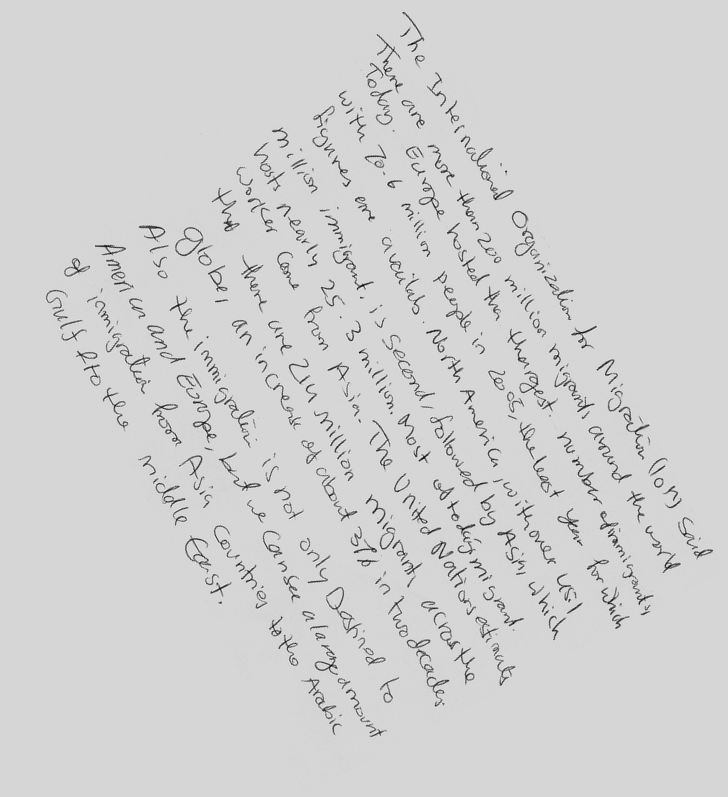 The International Organization for Migration (IOM) said
There are more than 200 million migrants around the world
Today. Europe hosted the thargest number of immigrants,
with 70.6 million people in 2005, the least year for which
figures are availab. North America, with over 45.1
million immigrant. is second, followed by Asia, which
hosts nearly 25.3 million. Most of today migrant.
worker come from Asia. The United Nations estimats
tha there are 214 million migrants across the
globe, an increase of about 37% in two decades
Also the immigration is not only Destined to
America and Europe, but we can see a large amount
of immigration from Asia countries to the Arabic
Gulf fto the middle East.